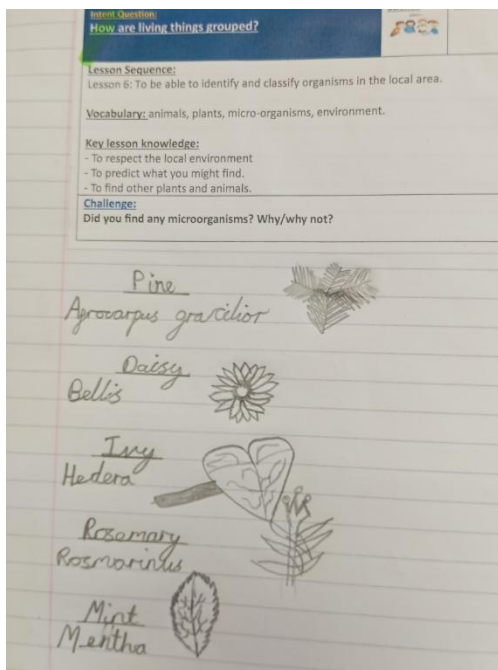 Intent Question:
How are living things grouped?
Lesson Sequence:
Lesson 6: To be able to identify and classify organisms in the local area.
Vocabulary: animals, plants, micro-organisms, environment.
Key lesson knowledge:
- To respect the local environment
- To predict what you might find.
- To find other plants and animals.
Challenge:
Did you find any microorganisms? Why/why not?
Pine
Agrocarpus gracilior
Daisy
Bellis
Ivy
Hedera
Rosemary
Rosmarinus
Mint
Mentha